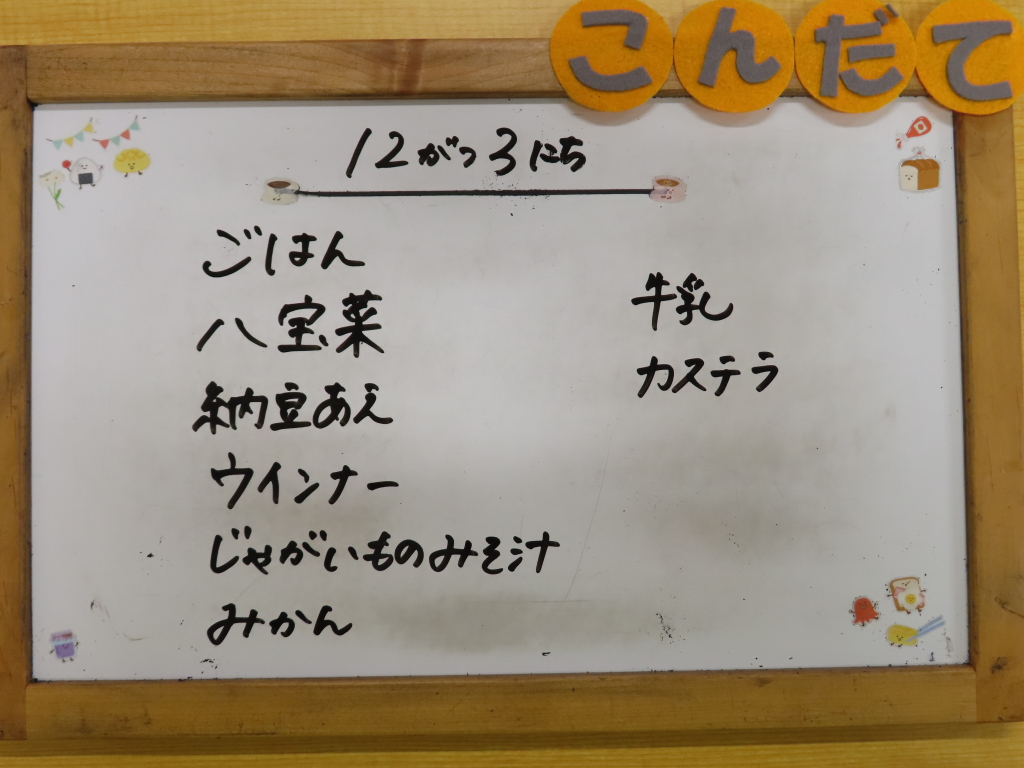 こんだて
12がつ3にち
ごはん
八宝菜
納豆あえ
ウインナー
じゃがいものみそ汁
みかん
牛乳
カステラ